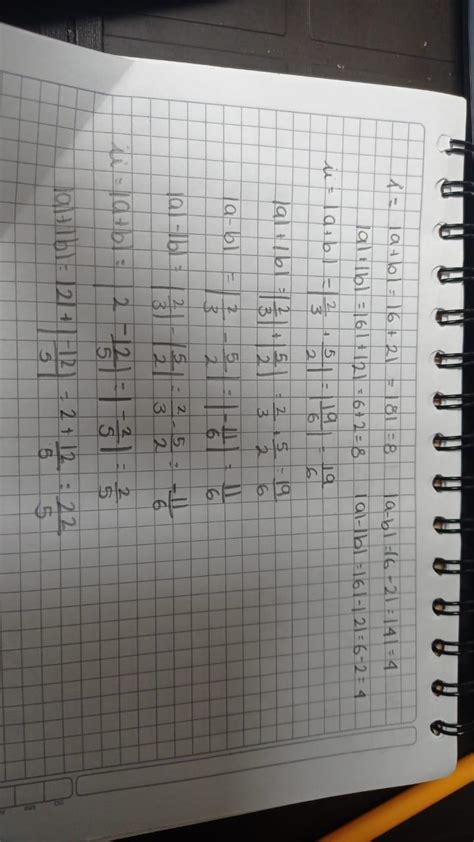 i = |a+b| = |6+2| = |8| = 8   |a-b| = |6-2| = |4| = 4
|a|+|b| = |6|+|2| = 6+2 = 8   |a|-|b| = |6|-|2| = 6-2 = 4
ii = |a+b| = |2/3 + 5/2| = |19/6| = 19/6
|a|+|b| = |2/3|+|5/2| = 2/3 + 5/2 = 19/6
|a-b| = |2/3 - 5/2| = |-11/6| = 11/6
|a|-|b| = |2/3|-|5/2| = 2/3 - 5/2 = -11/6
iii = |a+b| = |2 - 12/5| = |-2/5| = 2/5
|a|+|b| = |2|+|-12/5| = 2 + 12/5 = 22/5